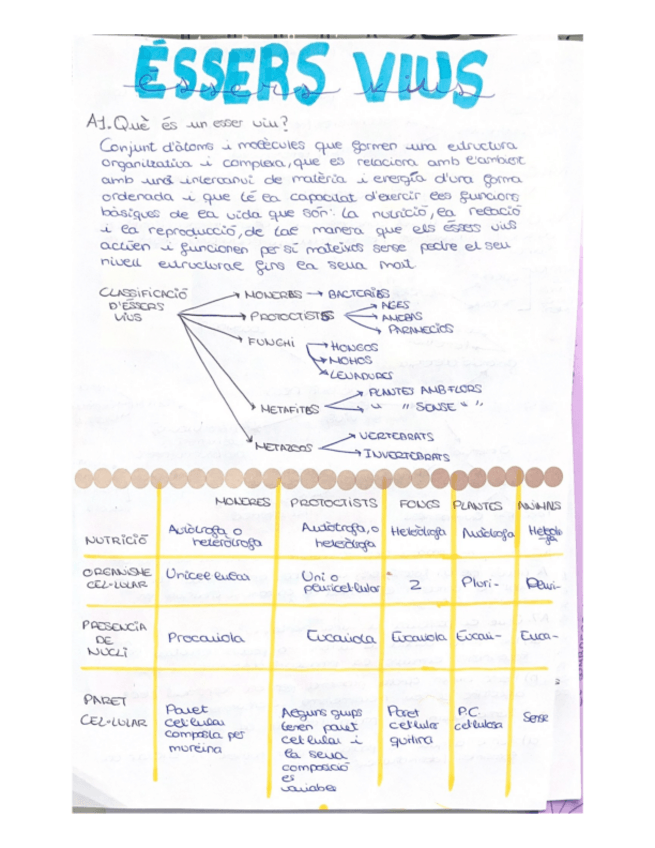 ÉSSERS VIUS
éssers vius
A1. Què és un esser viu?
Conjunt d'àtoms i molècules que formen una estructura
organitzativa i complexa, que es relaciona amb l'ambient
amb un intercanvi de matèria i energia d'una forma
ordenada i que té la capacitat d'exercir les funcions
bàsiques de la vida que són: la nutrició, la relació
i la reproducció, de tal manera que els éssers vius
actúen i funcionen per sí mateixos sense pedre el seu
nivell estructural fins la seua mort.
CLASSIFICACIÓ
D'ÉSSERS
VIUS
MONERES → BACTERIES
PROTOCTISTS
ALGES
AMEBAS
PARAMECIOS
FUNGHI
HONGOS
MOHOS
LEVADURAS
METAFITES
PLANTES AMB FLORS
" " SENSE " "
METAZOOS
VERTEBRATS
INVERTEBRATS
MONERES PROTOCTISTS FONGS PLANTES ANIMALS
NUTRICIÓ
Autòtrofa o
heteròtrofa
Autòtrofa, o
heteòtrofa
Heteòtrofa
Autòtrofa
ORGANISME
CEL·LULAR
Unicel·lular
Uni o
pluricel·lular
2
Pluri-
Pluri-
PRESENCIA
DE
NUCLI
Procariota
Eucariota
Eucariota
Eucari-
Euca-
PARET
CEL·LULAR
Paret
cel·lular
composta per
mureina
Alguns grups
tenen paret
cel·lular i
la seua
composició
es
variable
Paret
cel·lular
quitina
P.C.
cel·lulosa
Sense